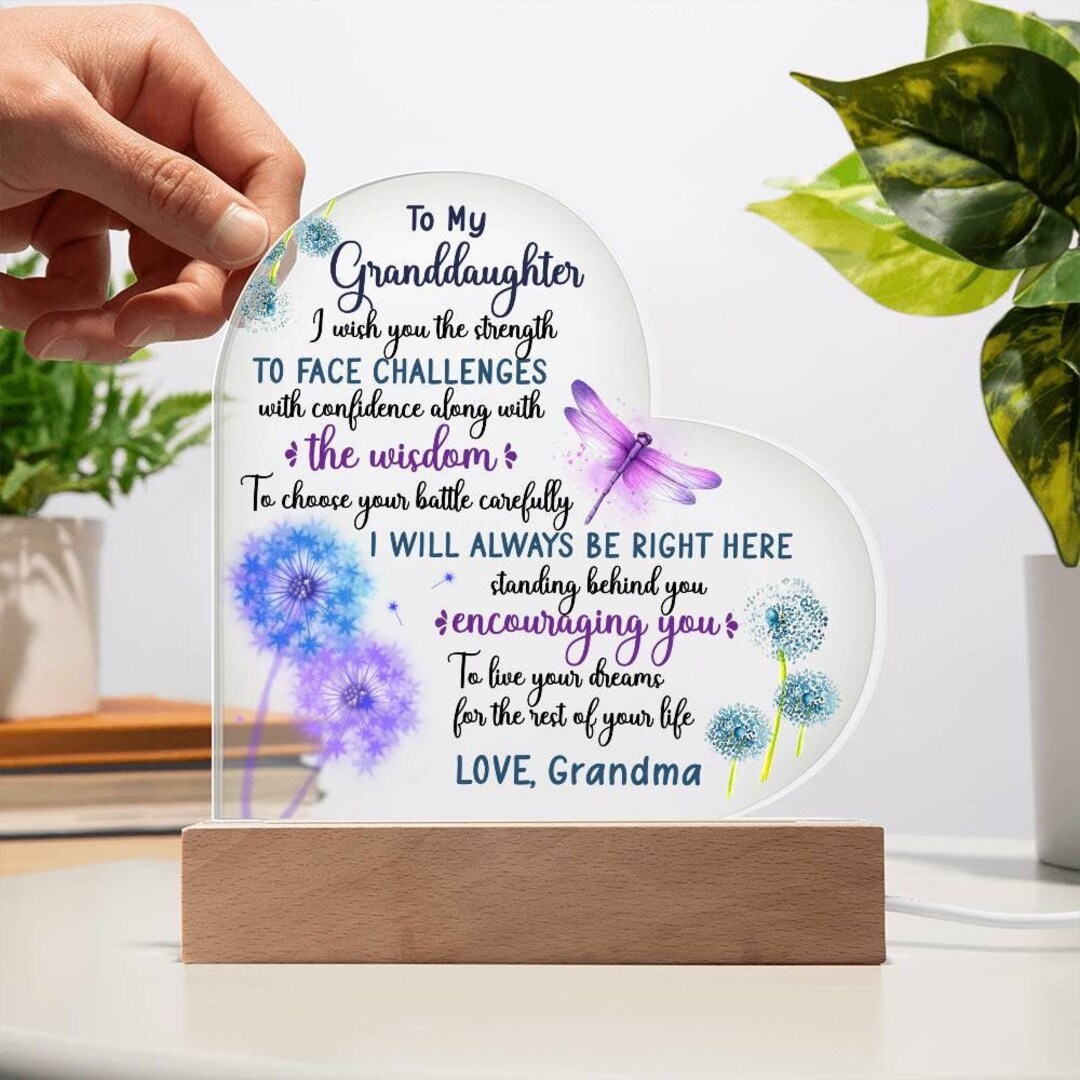 To My
Granddaughter
I wish you the strength
TO FACE CHALLENGES
with confidence along with
the wisdom
To choose your battle carefully
I WILL ALWAYS BE RIGHT HERE
standing behind you
encouraging you
To live your dreams
for the rest of your life
LOVE, Grandma